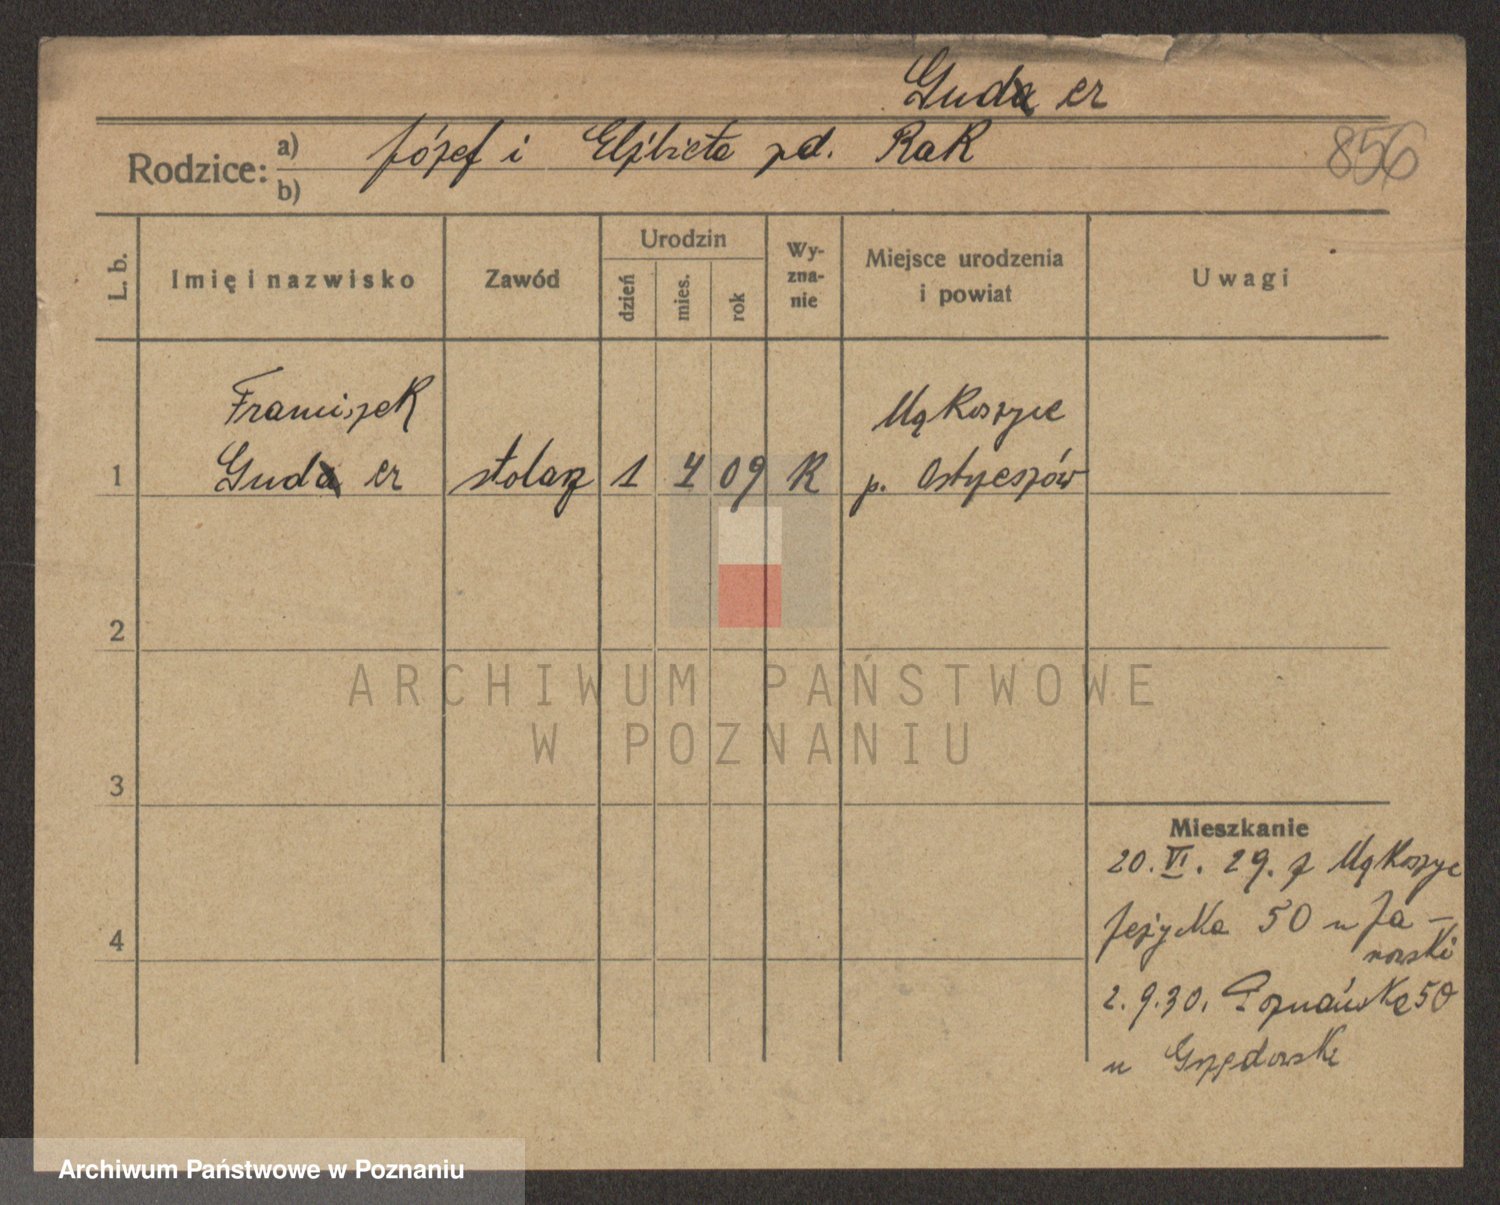 Guda er
Rodzice: a) Józef i Elżbieta zd. Rak
856
b)
L. b.
Imię i nazwisko
Zawód
Urodzin
dzień
mies.
rok
Wy-
zna-
nie
Miejsce urodzenia
i powiat
Uwagi
Franciszek
Mąkoszyce
1 Guda er stolarz 1 4 09 K p. Ostrzeszów
2
ARCHIWUM PAŃSTWOWE
W POZNANIU
3
Mieszkanie
20. VI. 29. z Mąkoszyc
Jeżycka 50 u Ja-
4
2. 9. 30. Poznańska 50
u
Archiwum Państwowe w Poznaniu